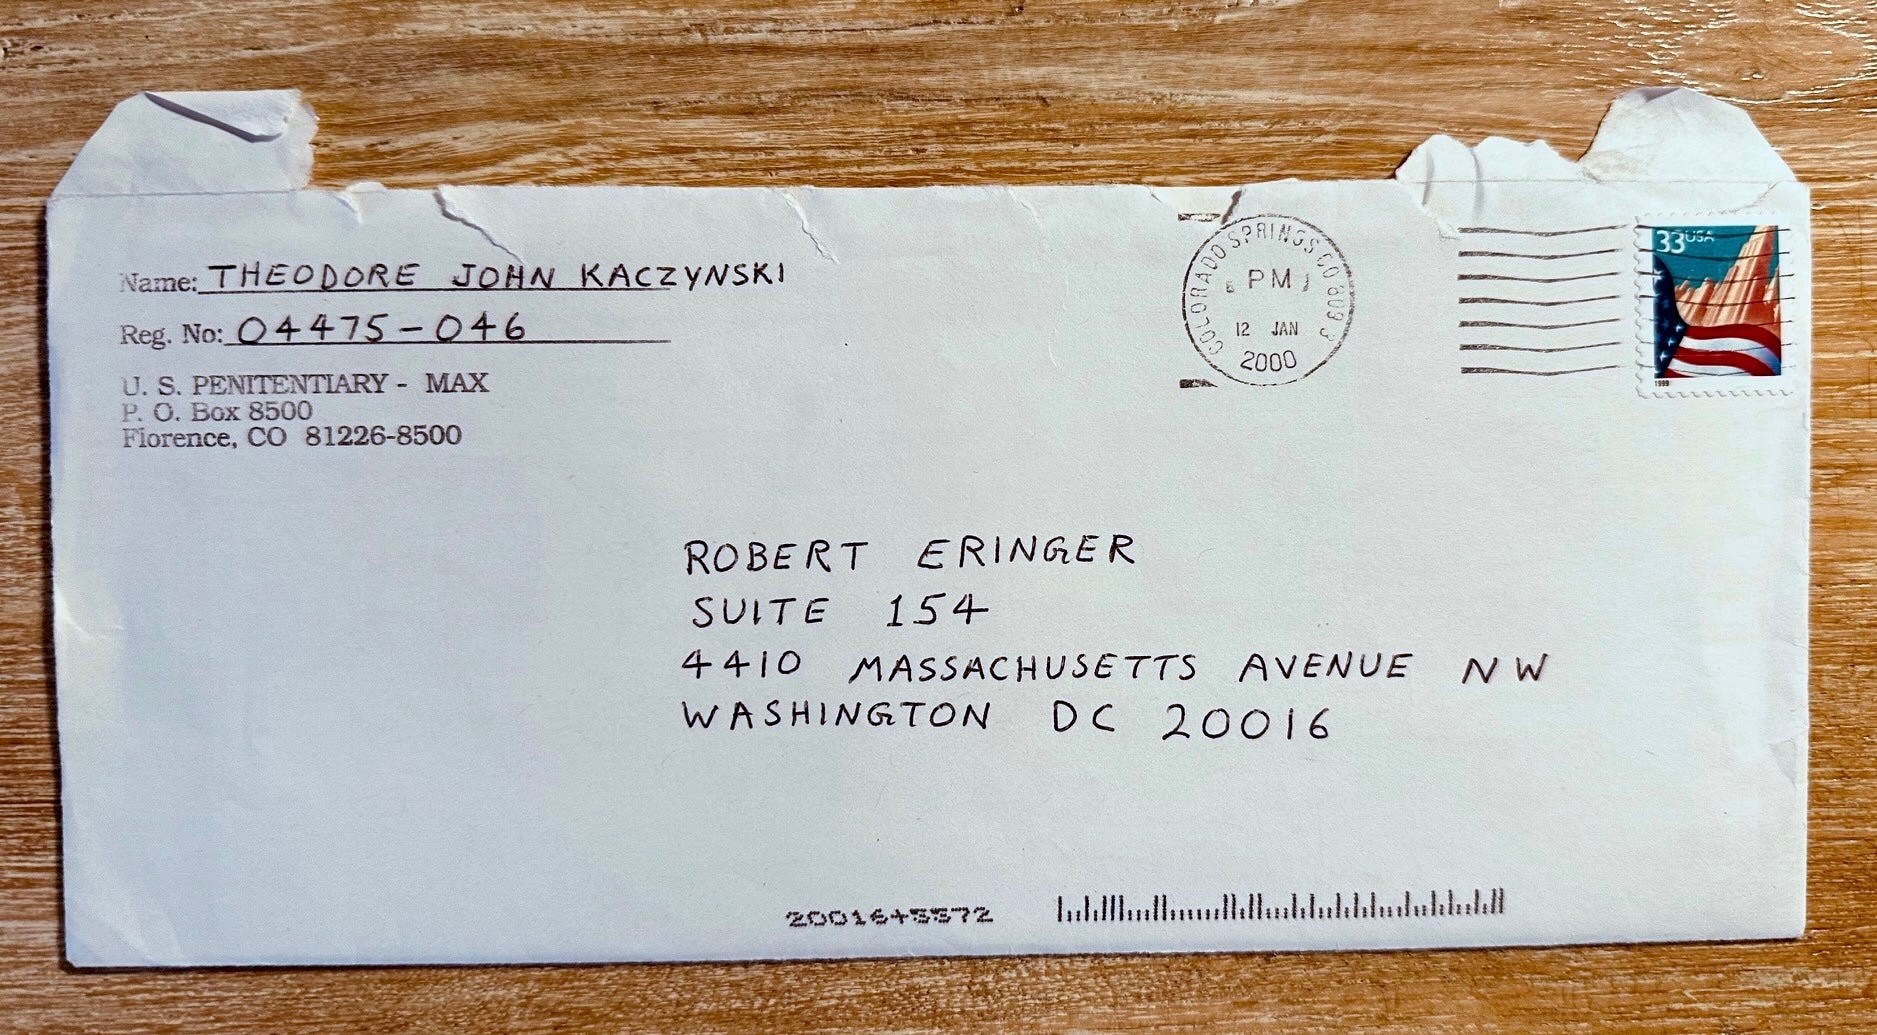 Name: THEODORE JOHN KACZYNSKI
Reg. No: 04475-046
U. S. PENITENTIARY - MAX
P. O. Box 8500
Florence, CO 81226-8500
COLORADO SPRINGS CO
PM
12 JAN
2000
33USA
1999
ROBERT ERINGER
SUITE 154
4410 MASSACHUSETTS AVENUE NW
WASHINGTON DC 20016
20016+5572